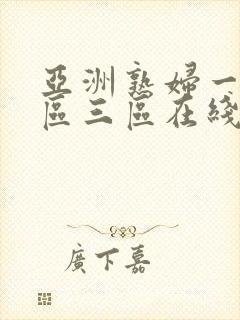 亞洲熟婦一
區三區在綫
廣下嘉